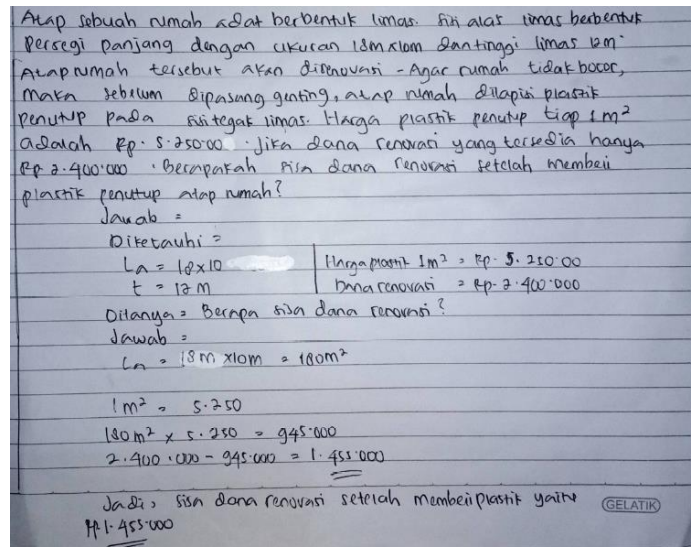 Atap sebuah rumah adat berbentuk limas. Sisi alas limas berbentuk
Persegi panjang dengan ukuran 18m x 10m dan tinggi limas 12m.
Atap rumah tersebut akan direnovasi - Agar rumah tidak bocor,
maka sebelum dipasang genting, atap rumah dilapisi plastik
penutup pada sisi tegak limas. Harga plastik penutup tiap 1 m²
adalah Rp. 5.250.00. Jika dana renovasi yang tersedia hanya
Rp 2.400.000. Berapakah sisa dana renovasi setelah membeli
plastik penutup atap rumah?
Jawab =
Diketauhi =
La = 18 x 10 Harga plastik 1m² = Rp. 5.250.00
t = 12 m Dana renovasi = Rp. 2.400.000
Ditanya = Berapa sisa dana renovasi?
Jawab =
La = 18m x 10m = 180m²
1m² = 5.250
180m² x 5.250 = 945.000
2.400.000 - 945.000 = 1.455.000
Jadi, sisa dana renovasi setelah membeli plastik yaitu
Rp 1.455.000
GELATIK